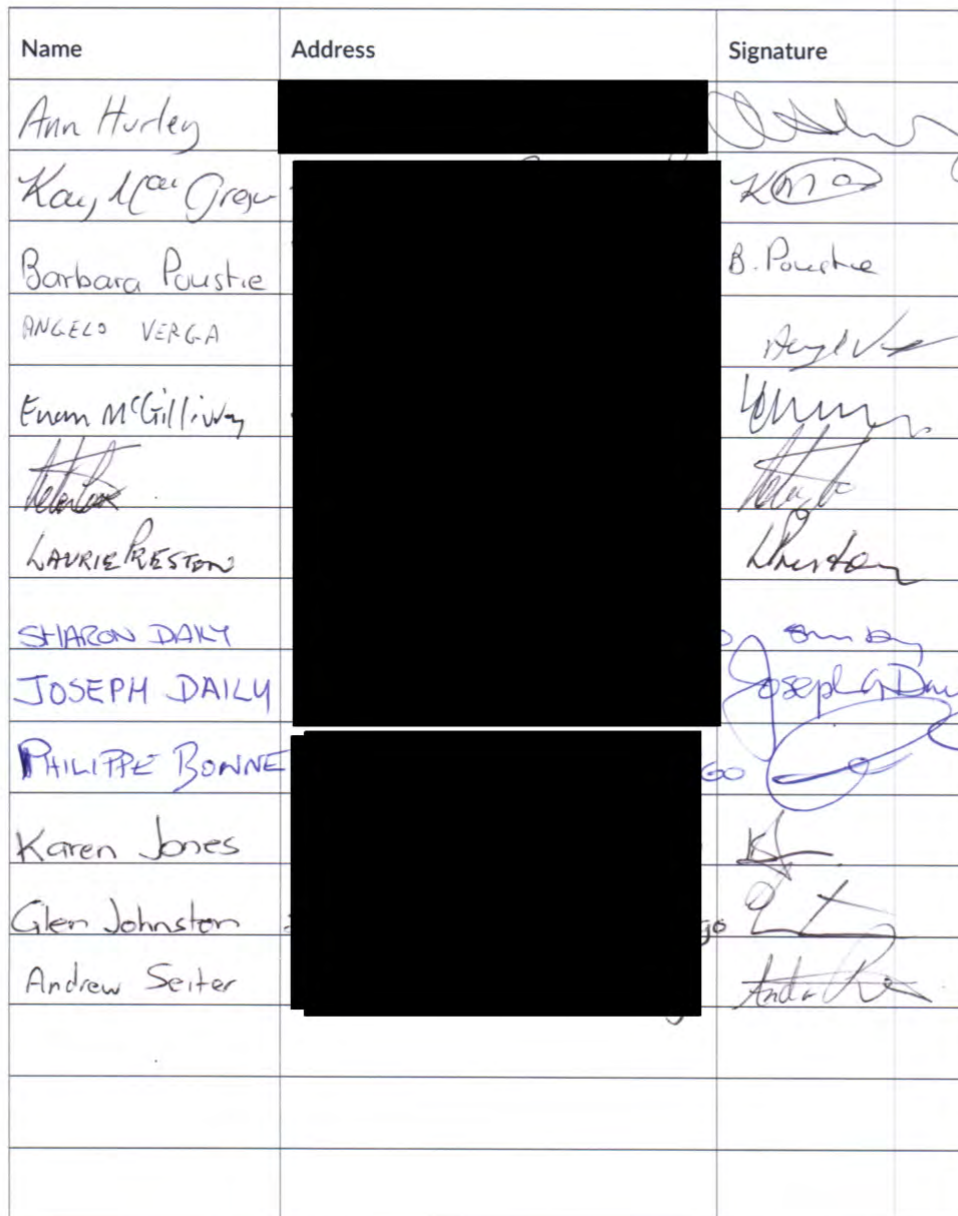 Name Address Signature
Ann Hurley
Kay
Barbara Poustie B. Poustie
ANGELO VERGA
McGillivray
LAURIE PRESTON LPreston
SHARON DAILY
JOSEPH DAILY Joseph G Daily
PHILIPPE BONNE GO
Karen Jones
Glen Johnston go
Andrew Seiter